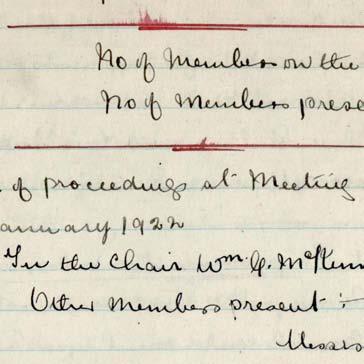 No of Members on the
No of Members prese
of proceedings at Meeting
anuary 1922
In the Chair Wm. G. McKenn
Other members present :-
Messrs